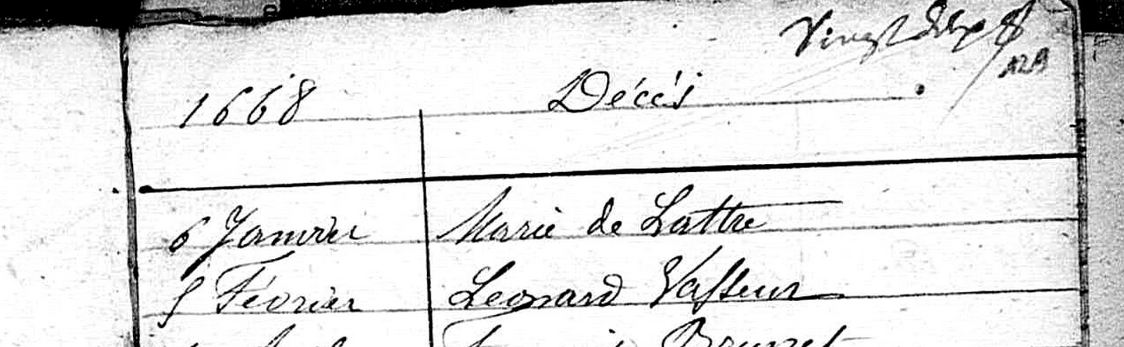 Vingt
1668 Décès
6 Janvier Marie de Lattre
5 Février Leonard Vasseur
Brunet